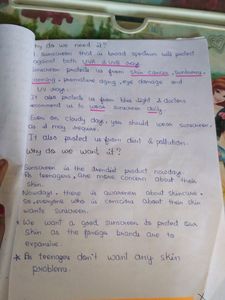 Why do we need it?
Sunscreen that is broad spectrum will protect
against both UVA & UVB rays.
Sunscreen protects us from skin cancer, sunburn,
premature aging, eye damage and
UV rays.
It also protects us from blue light & doctors
recommend us to wear sunscreen daily.
Even on cloudy day, you should wear sunscreen.
It also protect us from dirt & pollution.
Why do we want it?
Sunscreen is the trendist product nowdays
As teenagers, are more concern about their
skin.
Nowdays, there is awareness about skincare.
So, everyone who is concious about their skin
wants sunscreen.
We want a good sunscreen to protect our
skin as the foreign brands are to
expensive.
* As teenagers don't want any skin
problems.